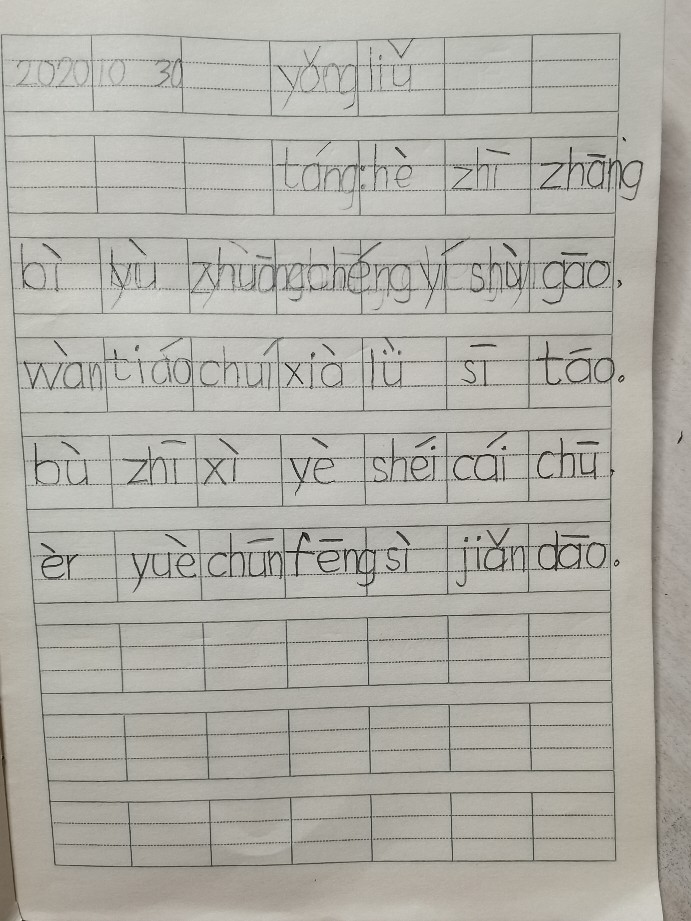 2020 10 30 yǒng liǔ
táng:hè zhī zhāng
bì yù zhuāng chéng yí shù gāo,
wàn tiáo chuí xià lǜ sī tāo。
bù zhī xì yè shéi cái chū,
èr yuè chūn fēng sì jiǎn dāo。